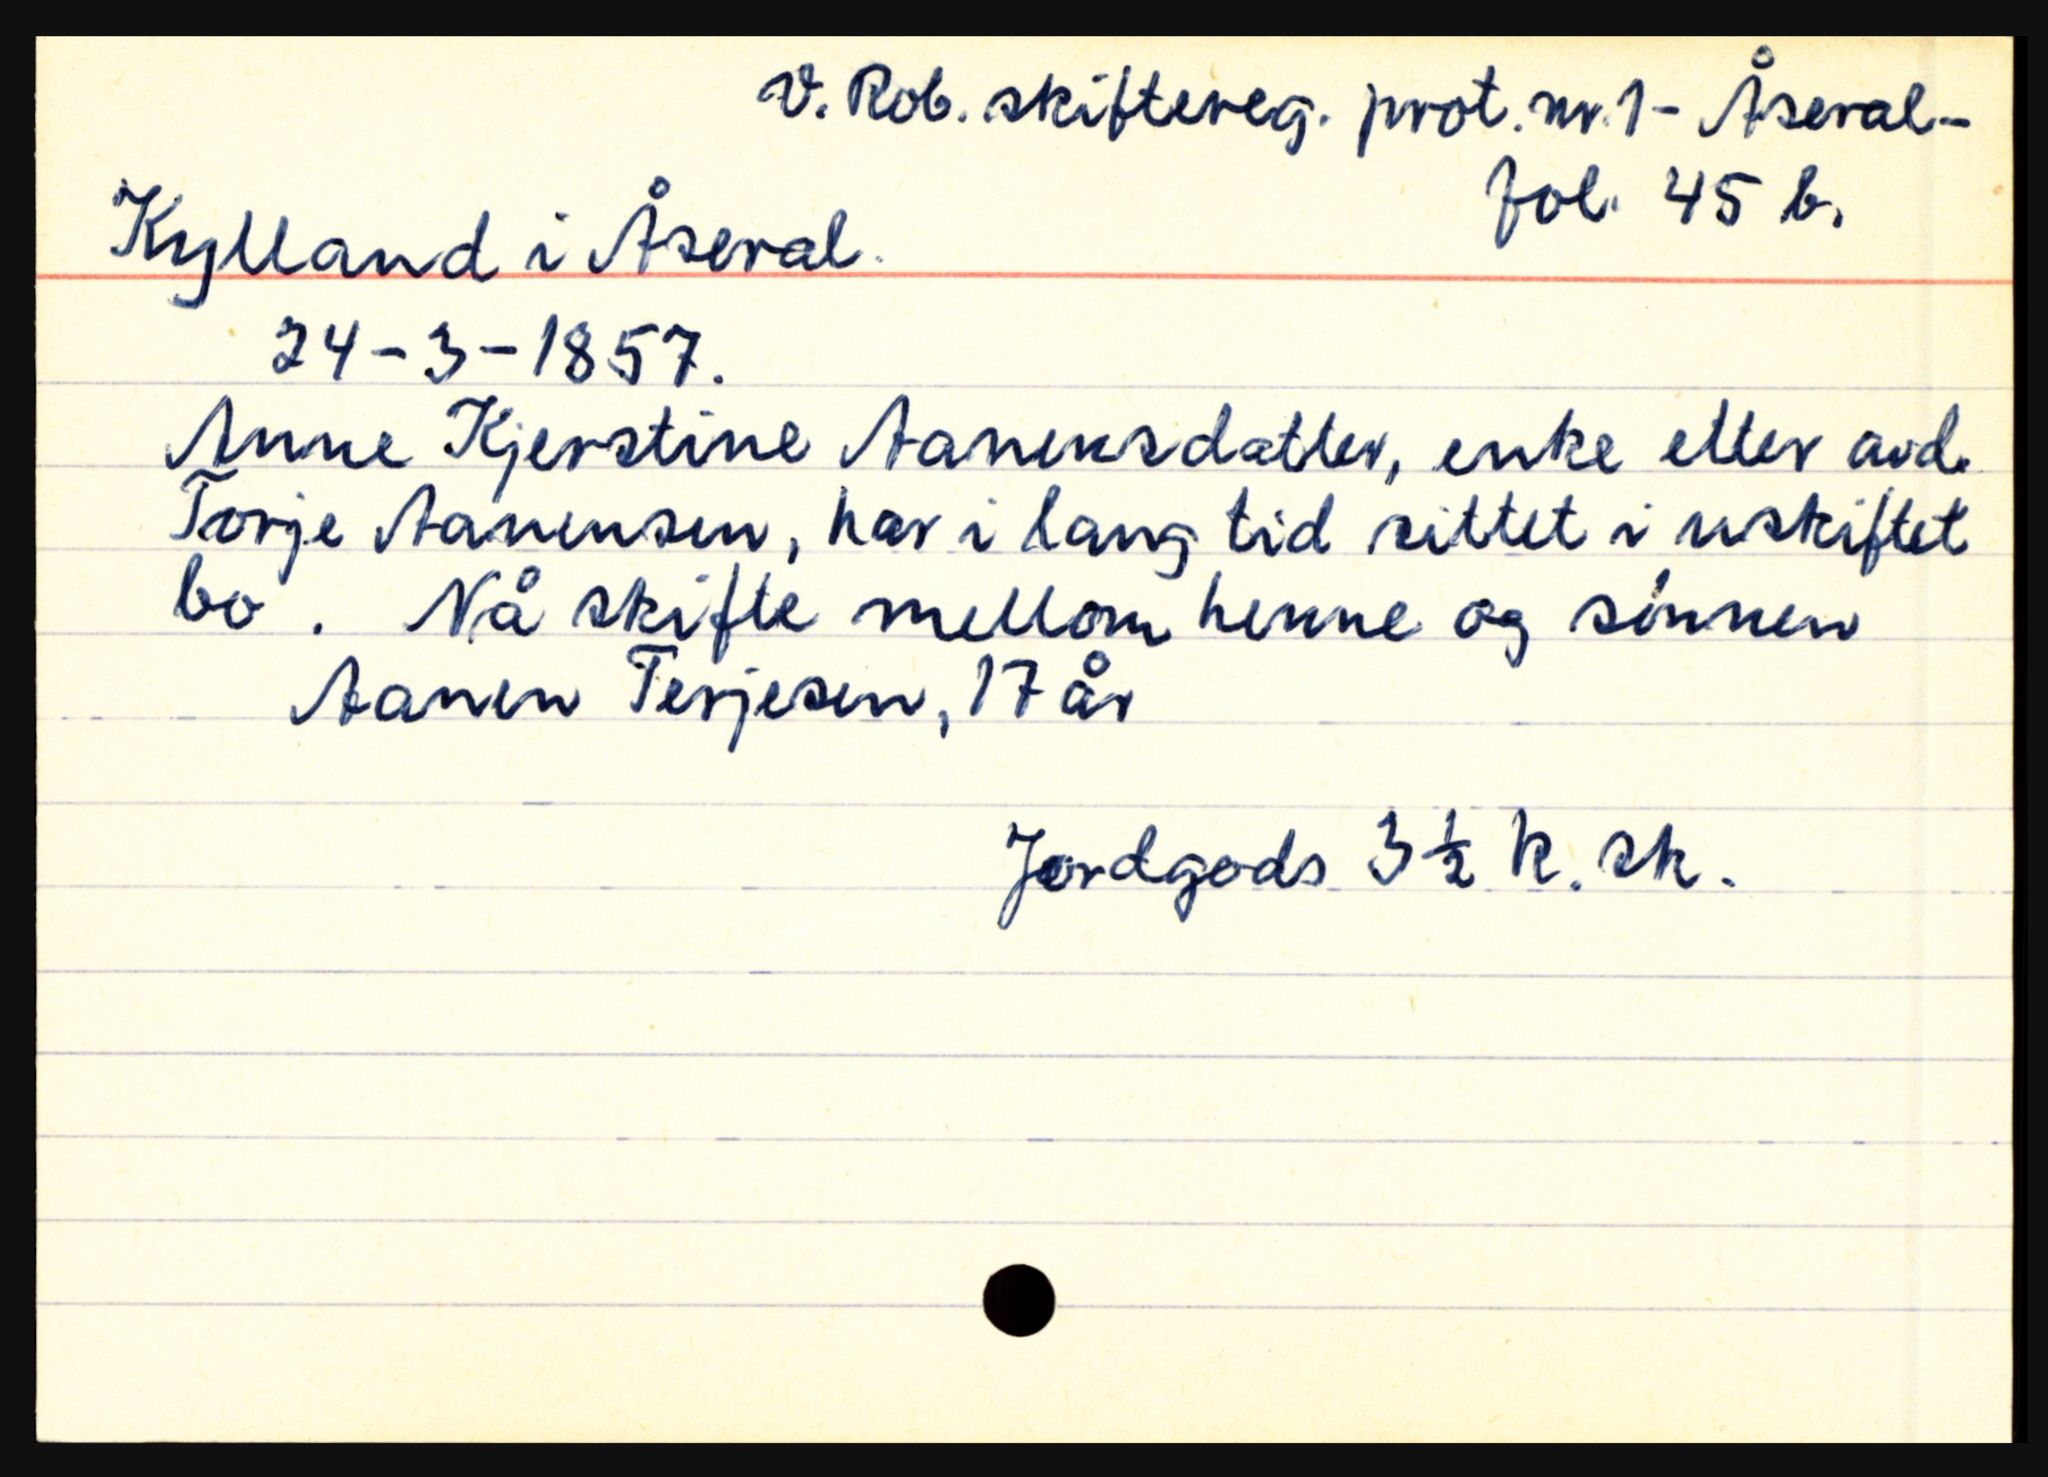 V. Rob. skiftereg. prot. nr. 1 - Åseral -
fol. 45 b.
Kylland i Åseral.
24-3-1857.
Anne Kjerstine Aanensdatter, enke etter avd.
Torje Aanensen, har i lang tid sittet i uskiftet
bo. Nå skifte mellom henne og sønnen
Aanen Terjesen, 17 år
Jordgods 3 ½ k. sk.